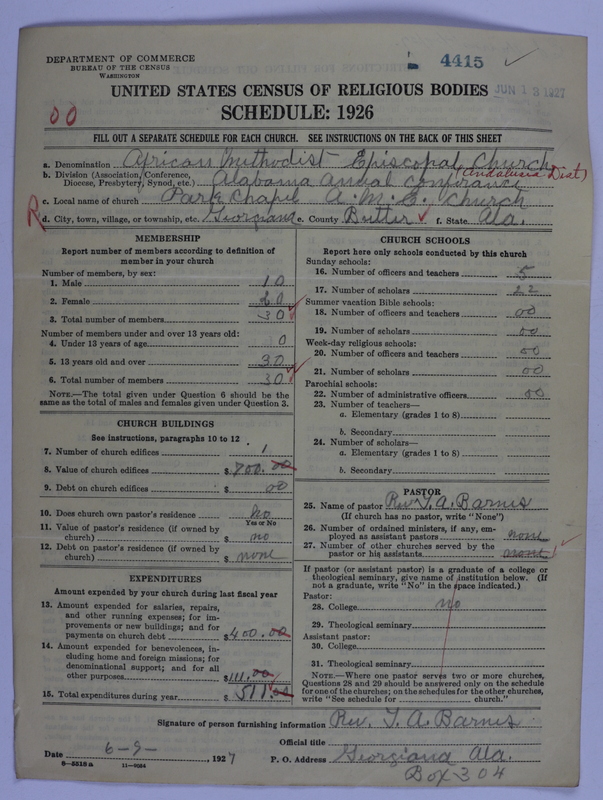 DEPARTMENT OF COMMERCE
BUREAU OF THE CENSUS
WASHINGTON
4415
JUN 13 1927
UNITED STATES CENSUS OF RELIGIOUS BODIES
SCHEDULE: 1926
00
FILL OUT A SEPARATE SCHEDULE FOR EACH CHURCH. SEE INSTRUCTIONS ON THE BACK OF THIS SHEET
a. Denomination African Methodist Episcopal Church
b. Division (Association, Conference, Diocese, Presbytery, Synod, etc.) Alabama Anual Conferance (Andalusia Dist)
c. Local name of church Park Chapel A. M. E. Church
R d. City, town, village, or township, etc. Georgiana e. County Butler f. State Ala.
MEMBERSHIP
Report number of members according to definition of
member in your church
Number of members, by sex:
1. Male 10
2. Female 20
3. Total number of members 30
Number of members under and over 13 years old:
4. Under 13 years of age 0
5. 13 years old and over 30
6. Total number of members 30
NOTE.—The total given under Question 6 should be the
same as the total of males and females given under Question 3.
CHURCH BUILDINGS
See instructions, paragraphs 10 to 12
7. Number of church edifices 1
8. Value of church edifices $ 700.00
9. Debt on church edifices $ 00
10. Does church own pastor's residence? No
Yes or No
11. Value of pastor's residence (if owned by
church) $ no
12. Debt on pastor's residence (if owned by
church) $ none
EXPENDITURES
Amount expended by your church during last fiscal year
13. Amount expended for salaries, repairs,
and other running expenses; for im-
provements or new buildings; and for
payments on church debt $400.00
14. Amount expended for benevolences, in-
cluding home and foreign missions; for
denominational support; and for all
other purposes $111.00
15. Total expenditures during year $ 511.00
CHURCH SCHOOLS
Report here only schools conducted by this church
Sunday schools:
16. Number of officers and teachers 5
17. Number of scholars 22
Summer vacation Bible schools:
18. Number of officers and teachers 00
19. Number of scholars 00
Week-day religious schools:
20. Number of officers and teachers 00
21. Number of scholars 00
Parochial schools:
22. Number of administrative officers 00
23. Number of teachers—
a. Elementary (grades 1 to 8)
b. Secondary
24. Number of scholars—
a. Elementary (grades 1 to 8)
b. Secondary
PASTOR
25. Name of pastor Rev T. A. Barnes
(If church has no pastor, write "None")
26. Number of ordained ministers, if any, em-
ployed as assistant pastors none
27. Number of other churches served by the
pastor or his assistants none
If pastor (or assistant pastor) is a graduate of a college or
theological seminary, give name of institution below. (If
not a graduate, write "No" in the space indicated.)
Pastor:
28. College no
29. Theological seminary
Assistant pastor:
30. College
31. Theological seminary
NOTE.—Where one pastor serves two or more churches,
Questions 28 and 29 should be answered only on the schedule
for one of the churches; on the schedules for the other churches,
write "See schedule for church."
Signature of person furnishing information Rev. T. A. Barnes
Official title
Date 6-9- 1927 P. O. Address Georgiana Ala.
Box 304
8-5518a 11-9024